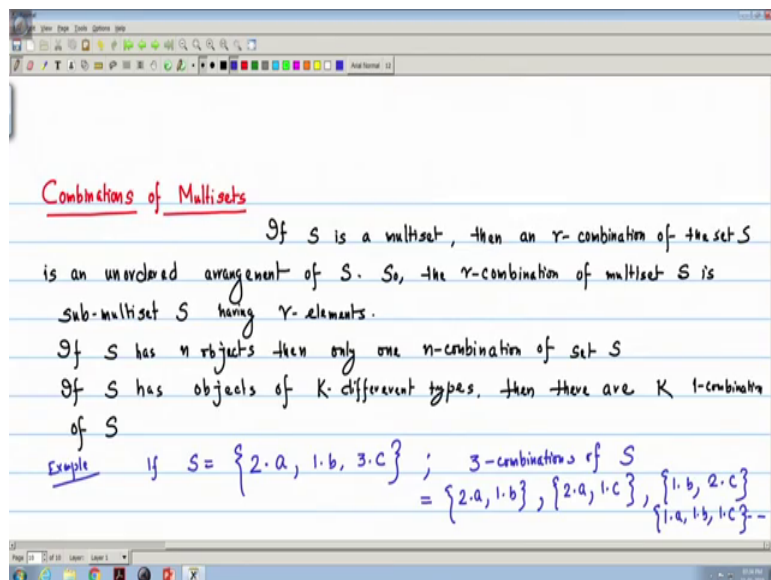 View Page Tools Options Help
Arial Normal 12
Combinations of Multisets
If S is a multiset, then an r-combination of the set S
is an unordered arrangement of S. So, the r-combination of multiset S is
sub-multiset S having r-elements.
If S has n objects then only one n-combination of set S
If S has objects of K-differevent types, then there are K 1-combination
of S
Example If S = {2·a, 1·b, 3·c} ; 3-combinations of S
= {2·a, 1·b}, {2·a, 1·c}, {1·b, 2·c}
{1·a, 1·b, 1·c}--
Page 10 of 10 Layer: Layer 1